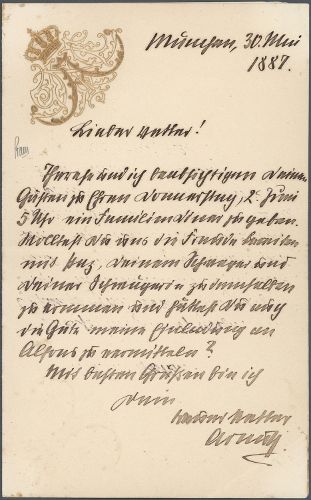 München, 30. Mai
1887.
Lieber Vetter!
Therese und ich beabsichtigen Deinen
Gästen zu Ehren Donnerstag, 2. Juni
5 Uhr ein Familiendiner zu geben.
Wolltest Du uns die Freude bereiten
mit Paz, Deinem Schwager und
Deiner Schwägerin zu demselben
zu kommen und hättest Du auch
die Güte meine Einladung an
Alfons zu vermitteln?
Mit besten Grüßen bin ich
Dein
treuer Vetter
Arnulf.